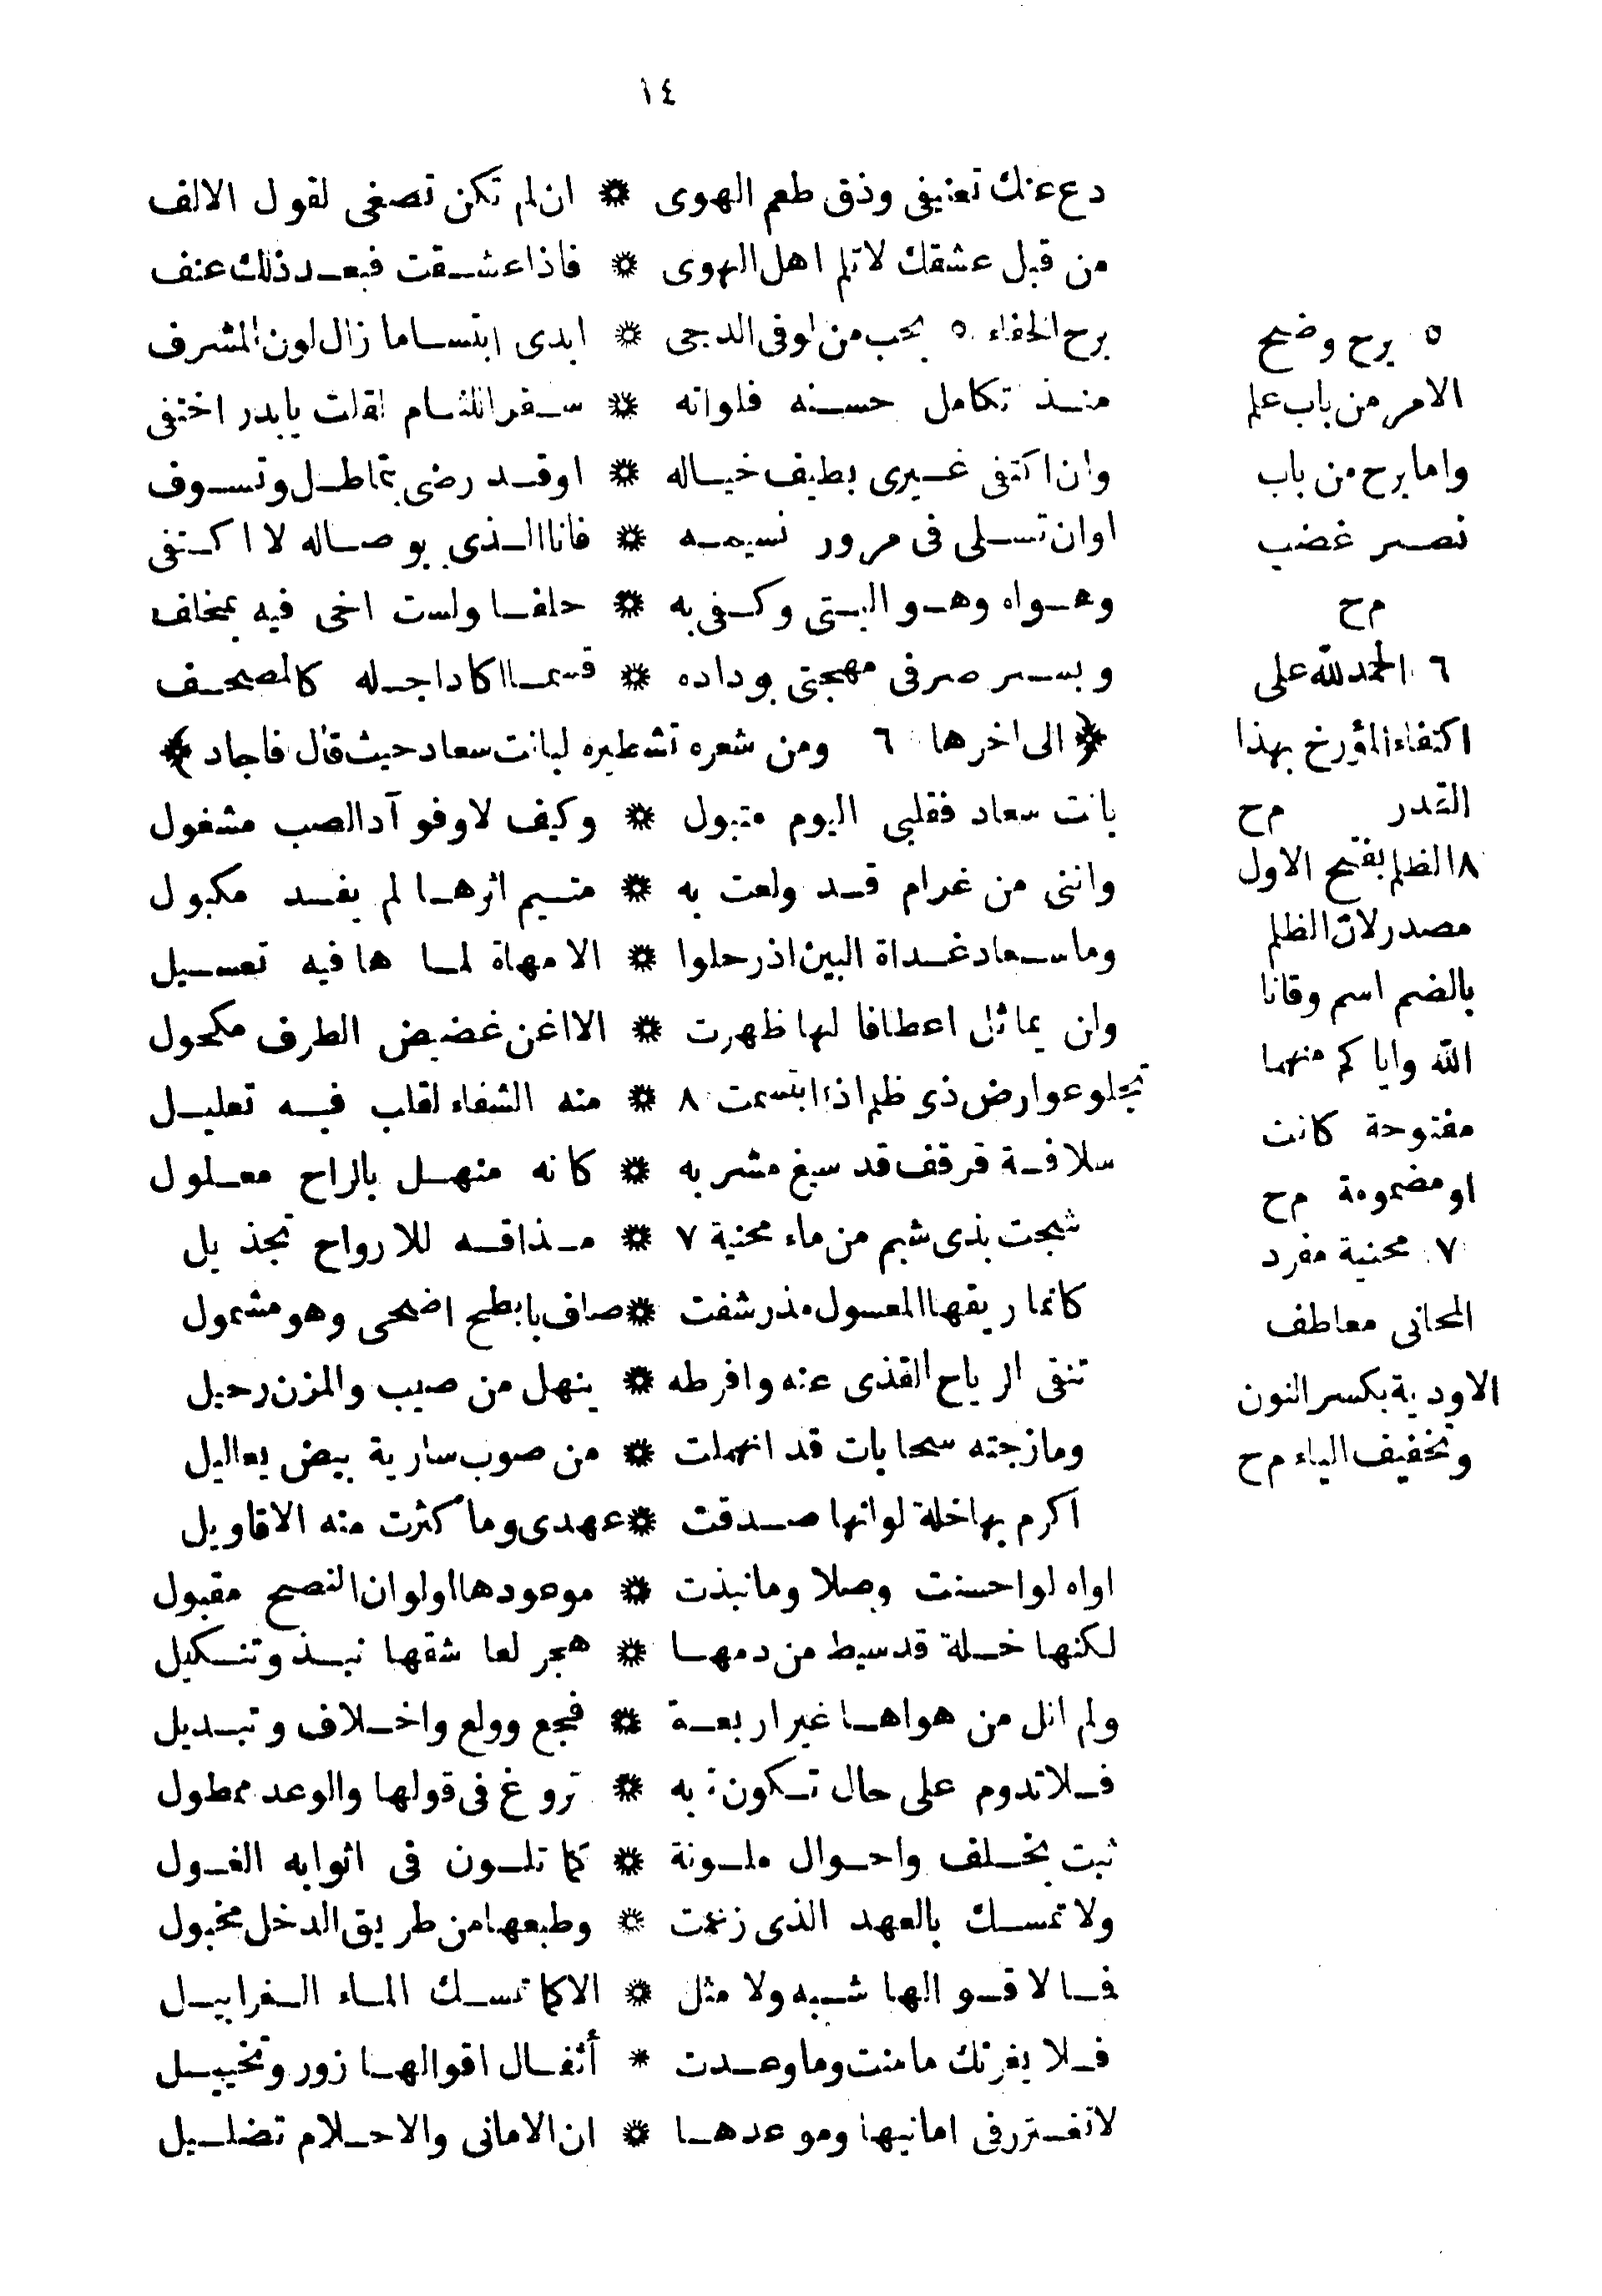 ١٤
دع عنك تعنيفى وذق طعم الهوى * ان لم تكن تصغى لقول الالف
من قبل عشقك لا تلم اهل الهوى * فاذا عشقت فبعد ذلك عنف
برح الخفاء ٥ بحب من لو فى الدجى * ابدى ابتساما زال لون المشرف
منذ تكامل حسنه فلو انه * سفر اللثام لقلت يا بدر اختفى
وان اكتفى غيرى بطيف خياله * او قد رضى بتماطل وتسوف
او ان تسلى فى مرور نسيمه * فانا الذى بوصاله لا اكتفى
وهواه وهو اليتى وكفى به * حلفا ولست اخى فيه بمخلف
وبسر صرفى مهجتى بوداده * قسما اكاد اجله كالمصحف
﴿ الى اخرها ٦ ومن شعره تشطيره لبانت سعاد حيث قال فاجاد ﴾
بانت سعاد فقلبى اليوم متبول * وكيف لا وفوآد الصب مشغول
واننى من غرام قد ولعت به * متيم اثرها لم يفد مكبول
وما سعاد غداة البين اذ رحلوا * الا مهاة لما ها فيه تعسيل
وان يماثل اعطافا لها ظهرت * الا اغن غضيض الطرف مكحول
تجلو عوارض ذى ظلم اذا ابتسمت ٨ * منه الشفاء لقلب فيه تعليل
سلافة قرقف قد سيغ مشربه * كانه منهل بالراح معلول
شجت بذى شبم من ماء محنية ٧ * مذاقه للارواح تجذيل
كانما ريقها المعسول مذ رشفت * صاف بابطح اضحى وهو مشمول
تنقى الرياح القذى عنه وافرطه * ينهل من صيب والمزن رحيل
ومازجته سحابات قد انهملت * من صوب سارية بيض يعاليل
اكرم بها خلة لو انها صدقت * عهدى وما كثرت منه الاقاويل
اواه لو احسنت وصلا وما نبذت * موعودها او لو ان النصح مقبول
لكنها خلة قد سيط من دمها * هجر لعاشقها نبذ وتنكيل
ولم انل من هواها غير اربعة * فجع وولع واخلاف وتبديل
فلا تدوم على حال تكون به * تروغ فى قولها والوعد ممطول
ثبت بخلف واحوال ملونة * كما تلون فى اثوابه الغول
ولا تمسك بالعهد الذى زعمت * وطبعها من طريق الدخل مخبول
فما لاقوالها شبه ولا مثل * الا كما تمسك الماء الغرابيل
فلا يغرنك ما منت وما وعدت * أثفال اقوالها زور وتخييل
لا تغترر فى امانيها وموعدها * ان الامانى والاحلام تضليل
٥ برح وضح
الامر من باب علم
واما برح من باب
نصر غضب
م ح
٦ الحمد لله على
اكتفاء المؤرخ بهذا
القدر م ح
٨ الظلم بفتح الاول
مصدر لان الظلم
بالضم اسم وقانا
الله واياكم منهما
مفتوحة كانت
او مضمومة م ح
٧ محنية مفرد
المحانى معاطف
الاودية بكسر النون
وتخفيف الياء م ح